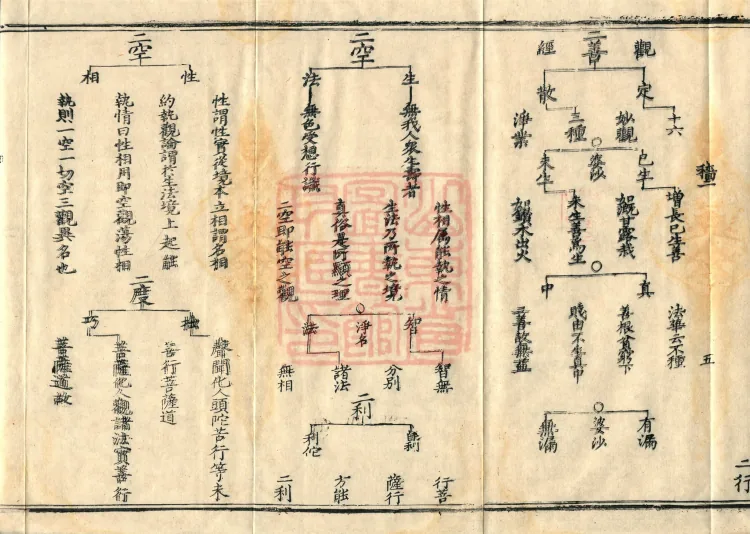 二善
觀
經
定
十六
妙觀
散
三種
淨業
○
婆沙
已生
增長已生善
如溉甘露栽
未生
未生善爲生
如鑽木出火
○
真
法華云不種
善根貧窮下
中
賤由不生真中
二善故無益
○
婆沙
有漏
無漏
五
二行
二空
生
無我人衆生壽者
法
無色受想行識
性相屬能執之情
生法乃所執之境
真俗是所顯之理
二空即能空之觀
○
淨名
智
智無
分別
法
諸法
無相
二利
自利
利佗
行菩
薩行
方能
二利
二空
性
性謂性實從境本立相謂名相
約執觀論謂於生法境上起能
相
執情曰性相用即空觀蕩性相
執則一空一切空三觀異名也
二度
拙
聲聞化人頭陀苦行等未
善行菩薩道
巧
菩薩化人觀諸法實善行
菩薩道故